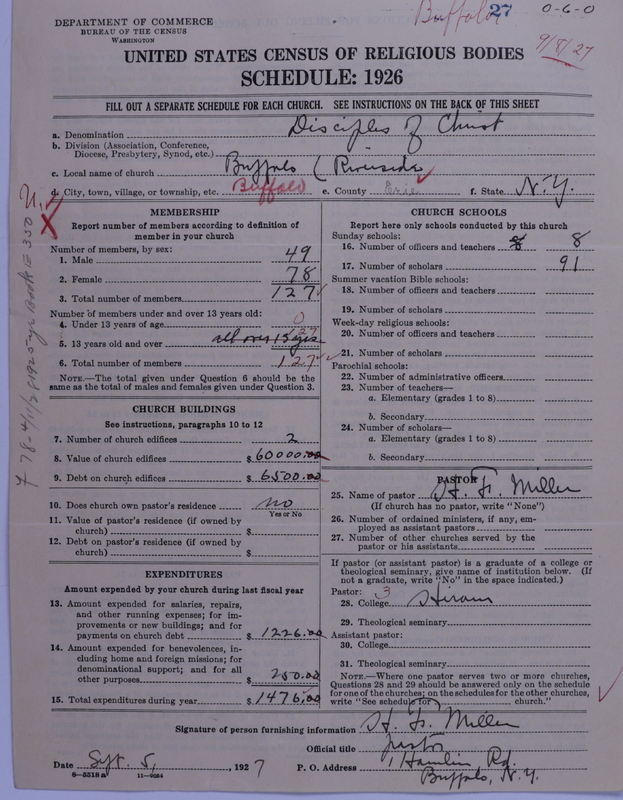 Buffalo 27 0-6-0
DEPARTMENT OF COMMERCE
BUREAU OF THE CENSUS
WASHINGTON
9/8/27
UNITED STATES CENSUS OF RELIGIOUS BODIES
SCHEDULE: 1926
FILL OUT A SEPARATE SCHEDULE FOR EACH CHURCH. SEE INSTRUCTIONS ON THE BACK OF THIS SHEET
a. Denomination Disciples of Christ
b. Division (Association, Conference,
Diocese, Presbytery, Synod, etc.)
c. Local name of church Buffalo (Riverside
d. City, town, village, or township, etc. Buffalo e. County Erie f. State N.Y.
MEMBERSHIP
Report number of members according to definition of
member in your church
Number of members, by sex:
1. Male 49
2. Female 78
3. Total number of members 127
Number of members under and over 13 years old:
4. Under 13 years of age 0
5. 13 years old and over all over 13 yrs 127
6. Total number of members 127
NOTE.—The total given under Question 6 should be the
same as the total of males and females given under Question 3.
CHURCH BUILDINGS
See instructions, paragraphs 10 to 12
7. Number of church edifices 2
8. Value of church edifices $60000.00
9. Debt on church edifices $6500.00
10. Does church own pastor's residence no
Yes or No
11. Value of pastor's residence (if owned by
church) $
12. Debt on pastor's residence (if owned by
church) $
EXPENDITURES
Amount expended by church during last fiscal year
13. Amount expended for salaries, repairs,
and other running expenses; for im-
provements or new buildings; and for
payments on church debt $1226.00
14. Amount expended for benevolences, in-
cluding home and foreign missions; for
denominational support; and for all
other purposes $250.00
15. Total expenditures during year $1476.00
CHURCH SCHOOLS
Report here only schools conducted by this church
Sunday schools:
16. Number of officers and teachers 8
17. Number of scholars 91
Summer vacation Bible schools:
18. Number of officers and teachers
19. Number of scholars
Week-day religious schools:
20. Number of officers and teachers
21. Number of scholars
Parochial schools:
22. Number of administrative officers
23. Number of teachers—
a. Elementary (grades 1 to 8)
b. Secondary
24. Number of scholars—
a. Elementary (grades 1 to 8)
b. Secondary
PASTOR
25. Name of pastor H. F. Miller
(If church has no pastor, write "None")
26. Number of ordained ministers, if any, em-
ployed as assistant pastors
27. Number of other churches served by the
pastor or his assistants
If pastor (or assistant pastor) is a graduate of a college or
theological seminary, give name of institution below. (If
not a graduate, write "No" in the space indicated.)
Pastor: 3
28. College Hiram
29. Theological seminary
Assistant pastor:
30. College
31. Theological seminary
NOTE.—Where one pastor serves two or more churches,
Questions 28 and 29 should be answered only on the schedule
for one of the churches; on the schedules for the other churches,
write "See schedule for church."
Signature of person furnishing information H. F. Miller
Official title pastor
Date Sept. 5, 1927 P. O. Address 1 Hamlin Rd.
8-5518a 11-9054 Buffalo, N.Y.